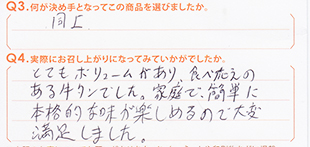 Q3.何が決め手となってこの商品を選びましたか。
同上
Q4.実際にお召し上がりになってみていかがでしたか。
とてもボリュームがあり、食べ応えの
ある牛タンでした。家庭で、簡単に
本格的な味が楽しめるので大変
満足しました。